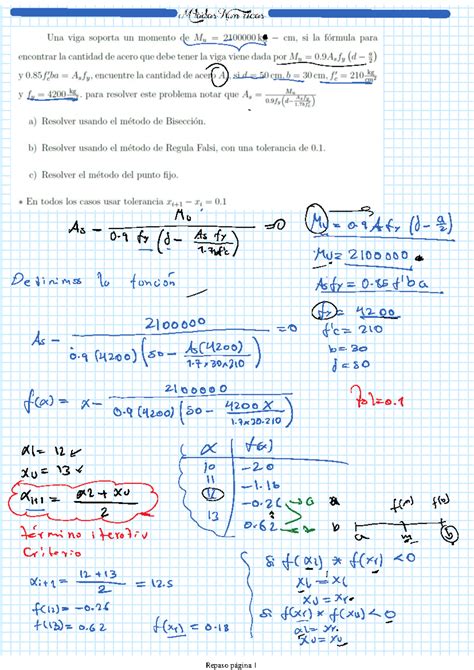 Métodos Numéricos
Una viga soporta un momento de Mu = 2100000 kg − cm, si la fórmula para
encontrar la cantidad de acero que debe tener la viga viene dada por Mu = 0.9Asfy (d − a/2)
y 0.85f'cba = Asfy, encuentre la cantidad de acero As, si d = 50 cm, b = 30 cm, f'c = 210 kg/cm²
y fy = 4200 kg, para resolver este problema notar que As = Mu / 0.9fy(d − Asfy/1.7bf'c)
a) Resolver usando el método de Bisección.
b) Resolver usando el método de Regula Falsi, con una tolerancia de 0.1.
c) Resolver el método del punto fijo.
* En todos los casos usar tolerancia xi+1 − xi = 0.1
As − Mu / 0.9 fy (d − As fy / 1.7bf'c) = 0
Mu = 0.9 As fy (d − a/2)
Mu = 2100000
As fy = 0.85 f'b a
Definimos la función
fy = 4200
f'c = 210
b = 30
d = 50
As − 2100000 / 0.9 (4200) (50 − As(4200) / 1.7x30x210) = 0
f(x) = x − 2100000 / 0.9 (4200) (50 − 4200 X / 1.7x30.210)
Tol = 0.1
xl = 12
xu = 13
xi+1 = xl + xu / 2
término iterativ
Criterio
x f(x)
10 -20
11 -1.16
12 -0.26 → a
13 0.62 → b
a f(m) f(b)
b
a m b
xi+1 = 12 + 13 / 2 = 12.5
f(12) = -0.26
f(13) = 0.62 f(xr) = 0.18
si f(xl) * f(xr) < 0
xl = xl
xu = xr
si f(xr) * f(xu) < 0
xl = xr
xu = xu
Repaso página 1